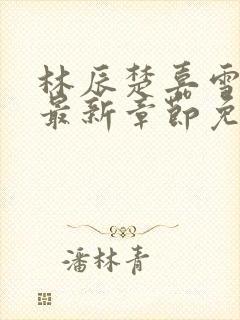 林辰楚嘉雪
最新章节免
潘林青